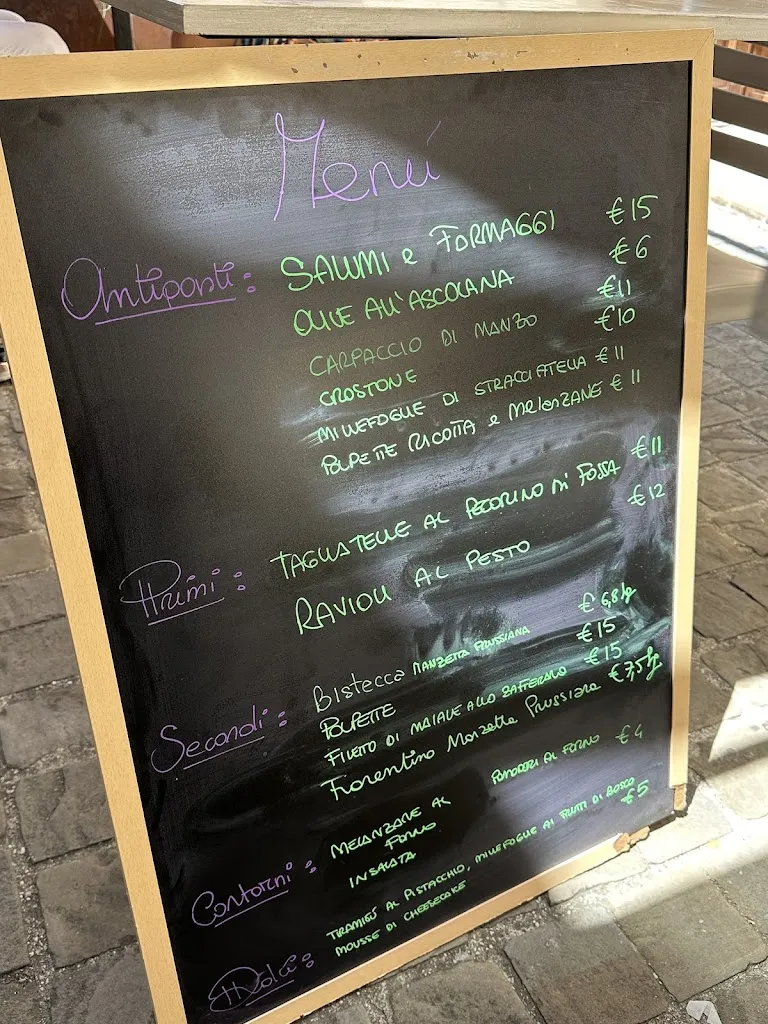 Menú
Antipasti: SALUMI e FORMAGGI €15
OLIVE ALL'ASCOLANA €6
CARPACCIO DI MANZO €11
CROSTONE €10
MILLEFOGLIE DI STRACCIATELLA €11
POLPETTE RICOTTA e MELANZANE €11
Primi: TAGLIATELLE AL PECORINO DI FOSSA €11
RAVIOLI AL PESTO €12
Secondi: Bistecca MANZETTA PRUSSIANA € 6,8 hg
POLPETTE €15
FILETTO DI MAIALE ALLO ZAFFERANO €15
Fiorentina Manzetta Prussiana €7,5 hg
Contorni: MELANZANE AL FORNO POMODORI AL FORNO €4
INSALATA
Dolci: TIRAMISÙ AL PISTACCHIO, MILLEFOGLIE AI FRUTTI DI BOSCO €5
MOUSSE DI CHEESECAKE